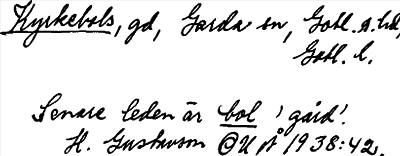 Kyrkebols, gd, Garda sn, Gotl. s. hd,
Gotl. l.
Senare leden är bol 'gård'.
H. Gustavson OUÅ 1938:42.